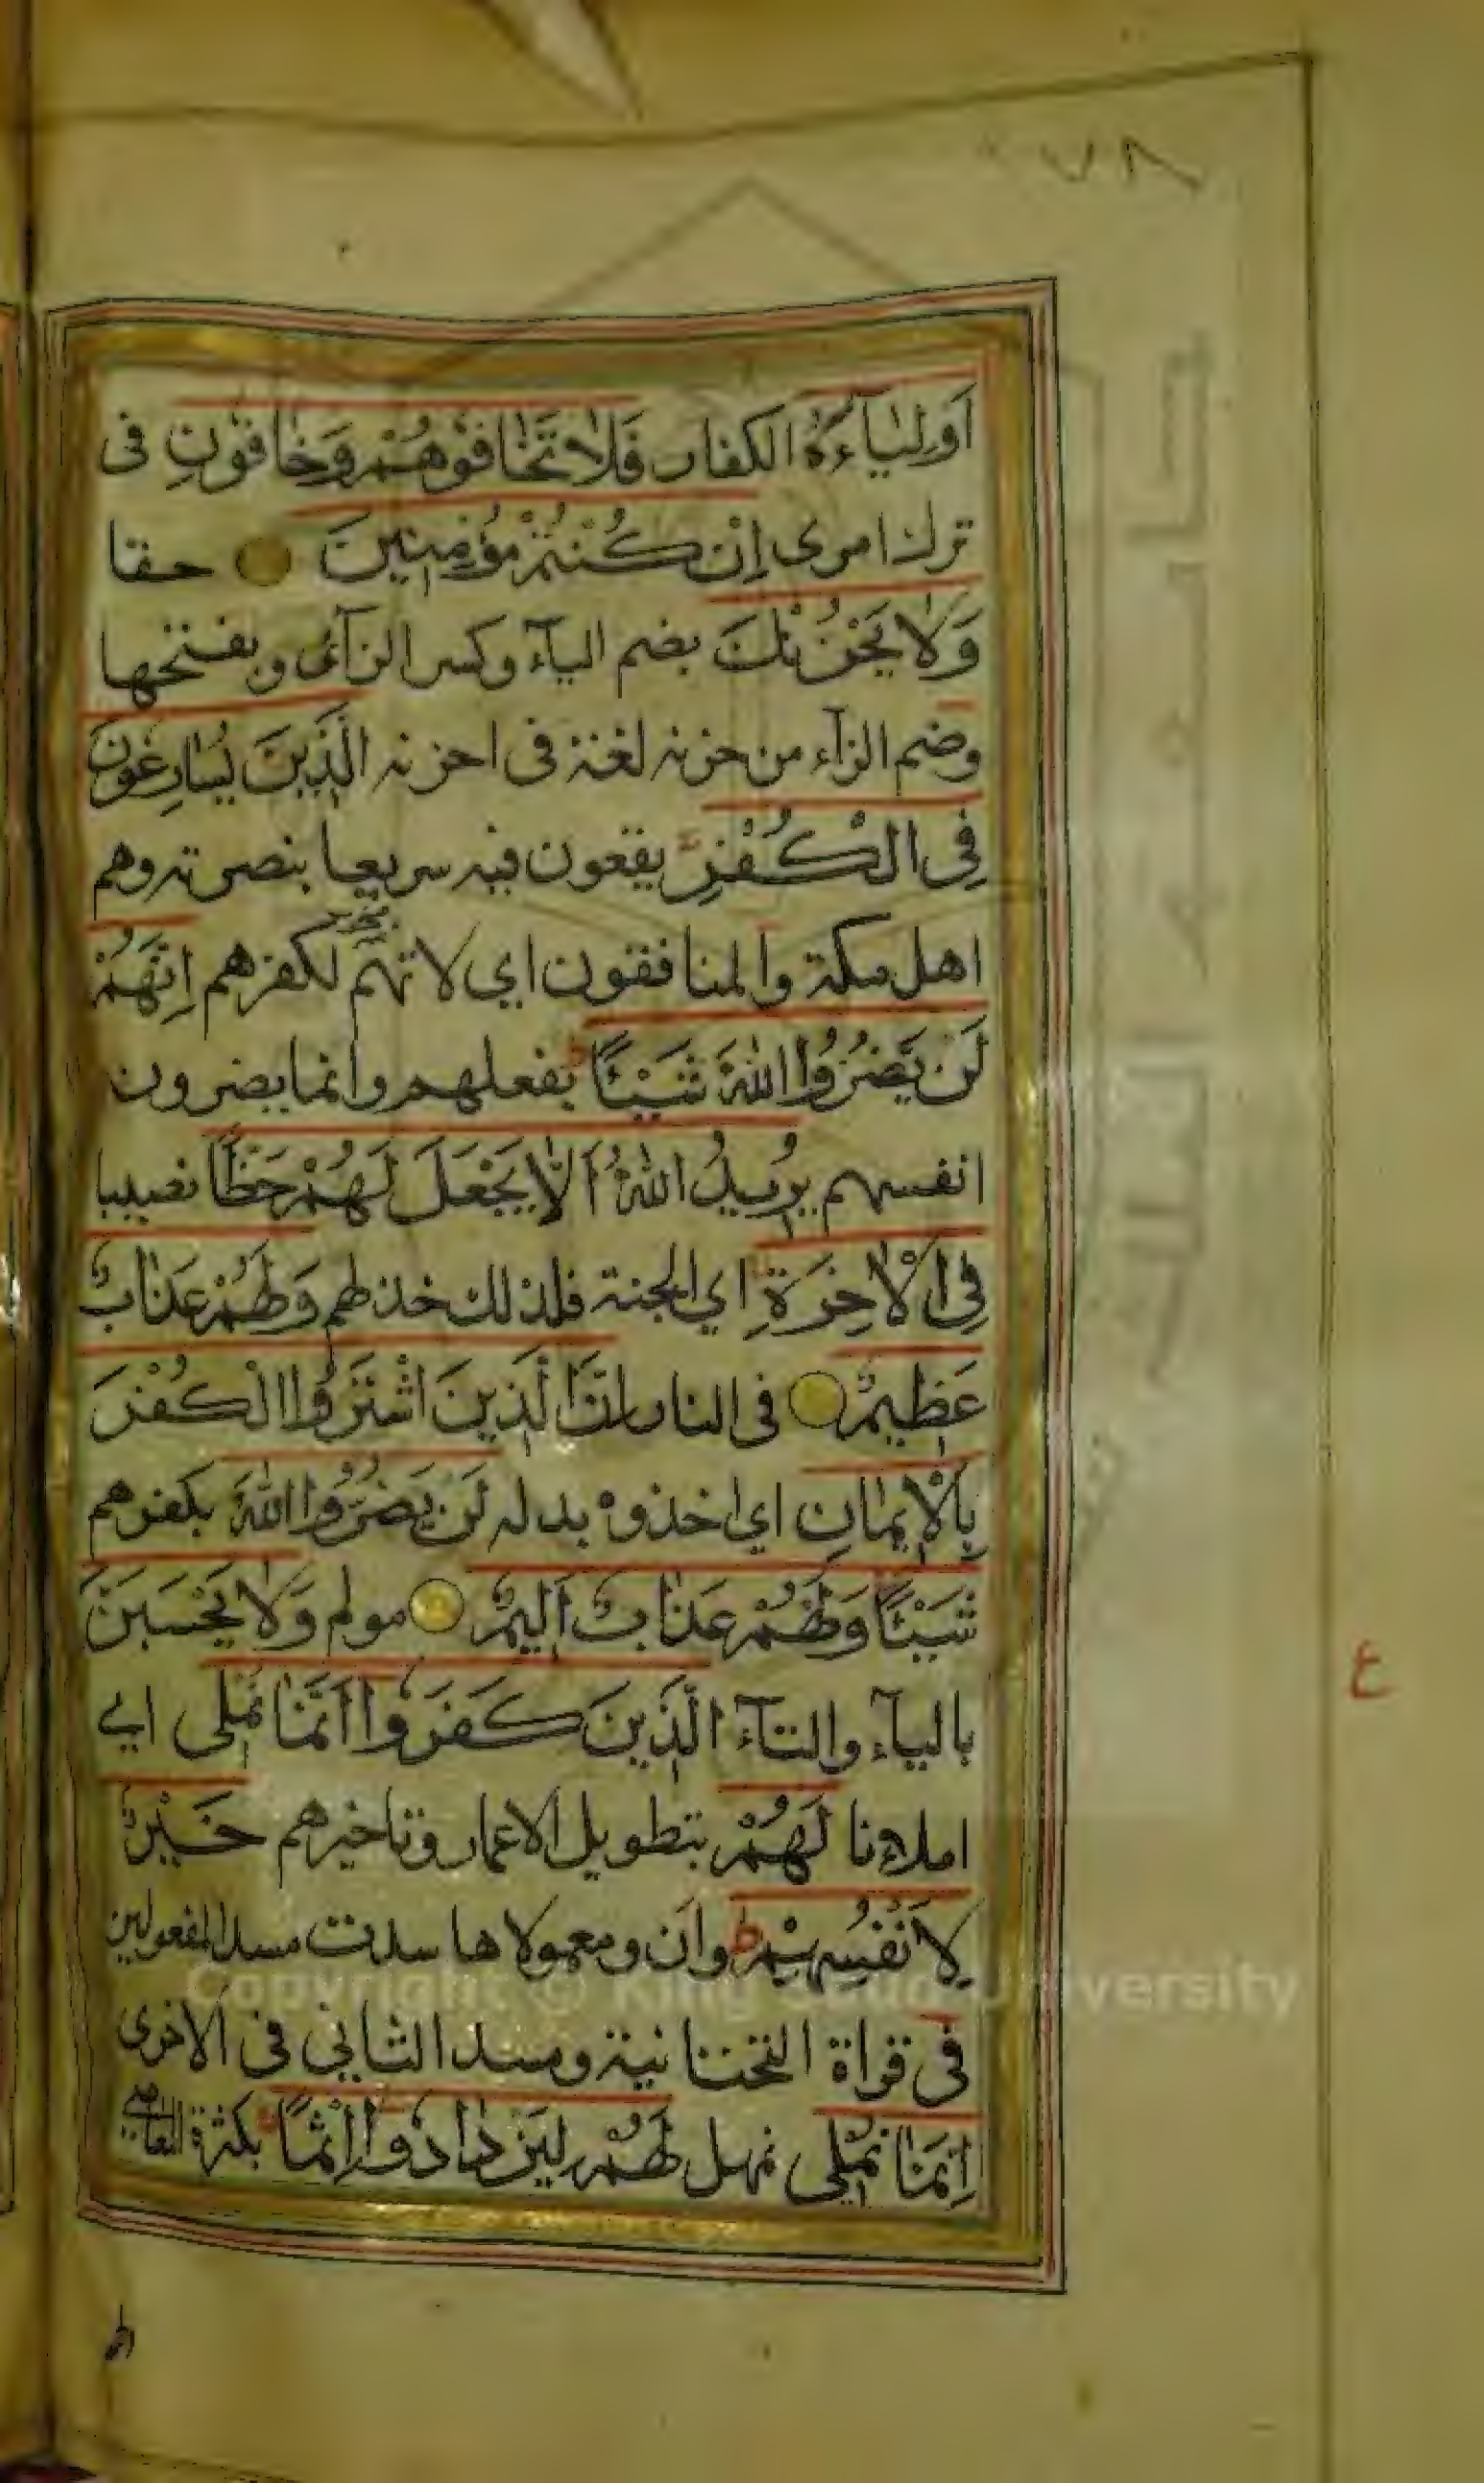 ٧٨
اَوْلِيَآءَهُ الكفار فَلَا تَخَافُوْهُمْ وَخَافُوْنِ فى
ترك امرى اِنْ كُنْتُمْ مُؤْمِنِينَ حقا
وَلَا يَحْزُنْكَ بضم اليآء وكسر الزآى وبفتحها
وضم الزآء من حزنه لغة فى احزنه الَّذِينَ يُسَارِعُونَ
فِى الْكُفْرِ يقعون فيه سريعا بنصرته وهم
اهل مكة والمنافقون اي لا تهتم لكفرهم اِنَّهُمْ
لَنْ يَضُرُّوا اللّٰهَ شَيْئًا بفعلهم وانما يضرون
انفسهم يُرِيدُ اللّٰهُ اَلَّا يَجْعَلَ لَهُمْ حَظًّا نصيبا
فِى الْاٰخِرَةِ اي الجنة فلذلك خذلهم وَلَهُمْ عَذَابٌ
عَظِيمٌ فى النار اِنَّ الَّذِينَ اشْتَرَوُا الْكُفْرَ
بِالْاِيمَانِ اي اخذوه بدله لَنْ يَضُرُّوا اللّٰهَ بكفرهم
شَيْئًا وَلَهُمْ عَذَابٌ اَلِيمٌ مولم وَلَا يَحْسَبَنَّ
باليآء والتآء الَّذِينَ كَفَرُوا اَنَّمَا نُمْلِى اي
املاءنا لَهُمْ بتطويل الاعمار وتاخيرهم خَيْرٌ
لِاَنْفُسِهِمْ ط وان ومعمولاها سدت مسد المفعولين
فى قراة التحتانية ومسد الثانى فى الاخرى
اِنَّمَا نُمْلِى نمهل لَهُمْ لِيَزْدَادُوا اِثْمًا بكثرة المعاصي
ع
Copyright © King Saud University